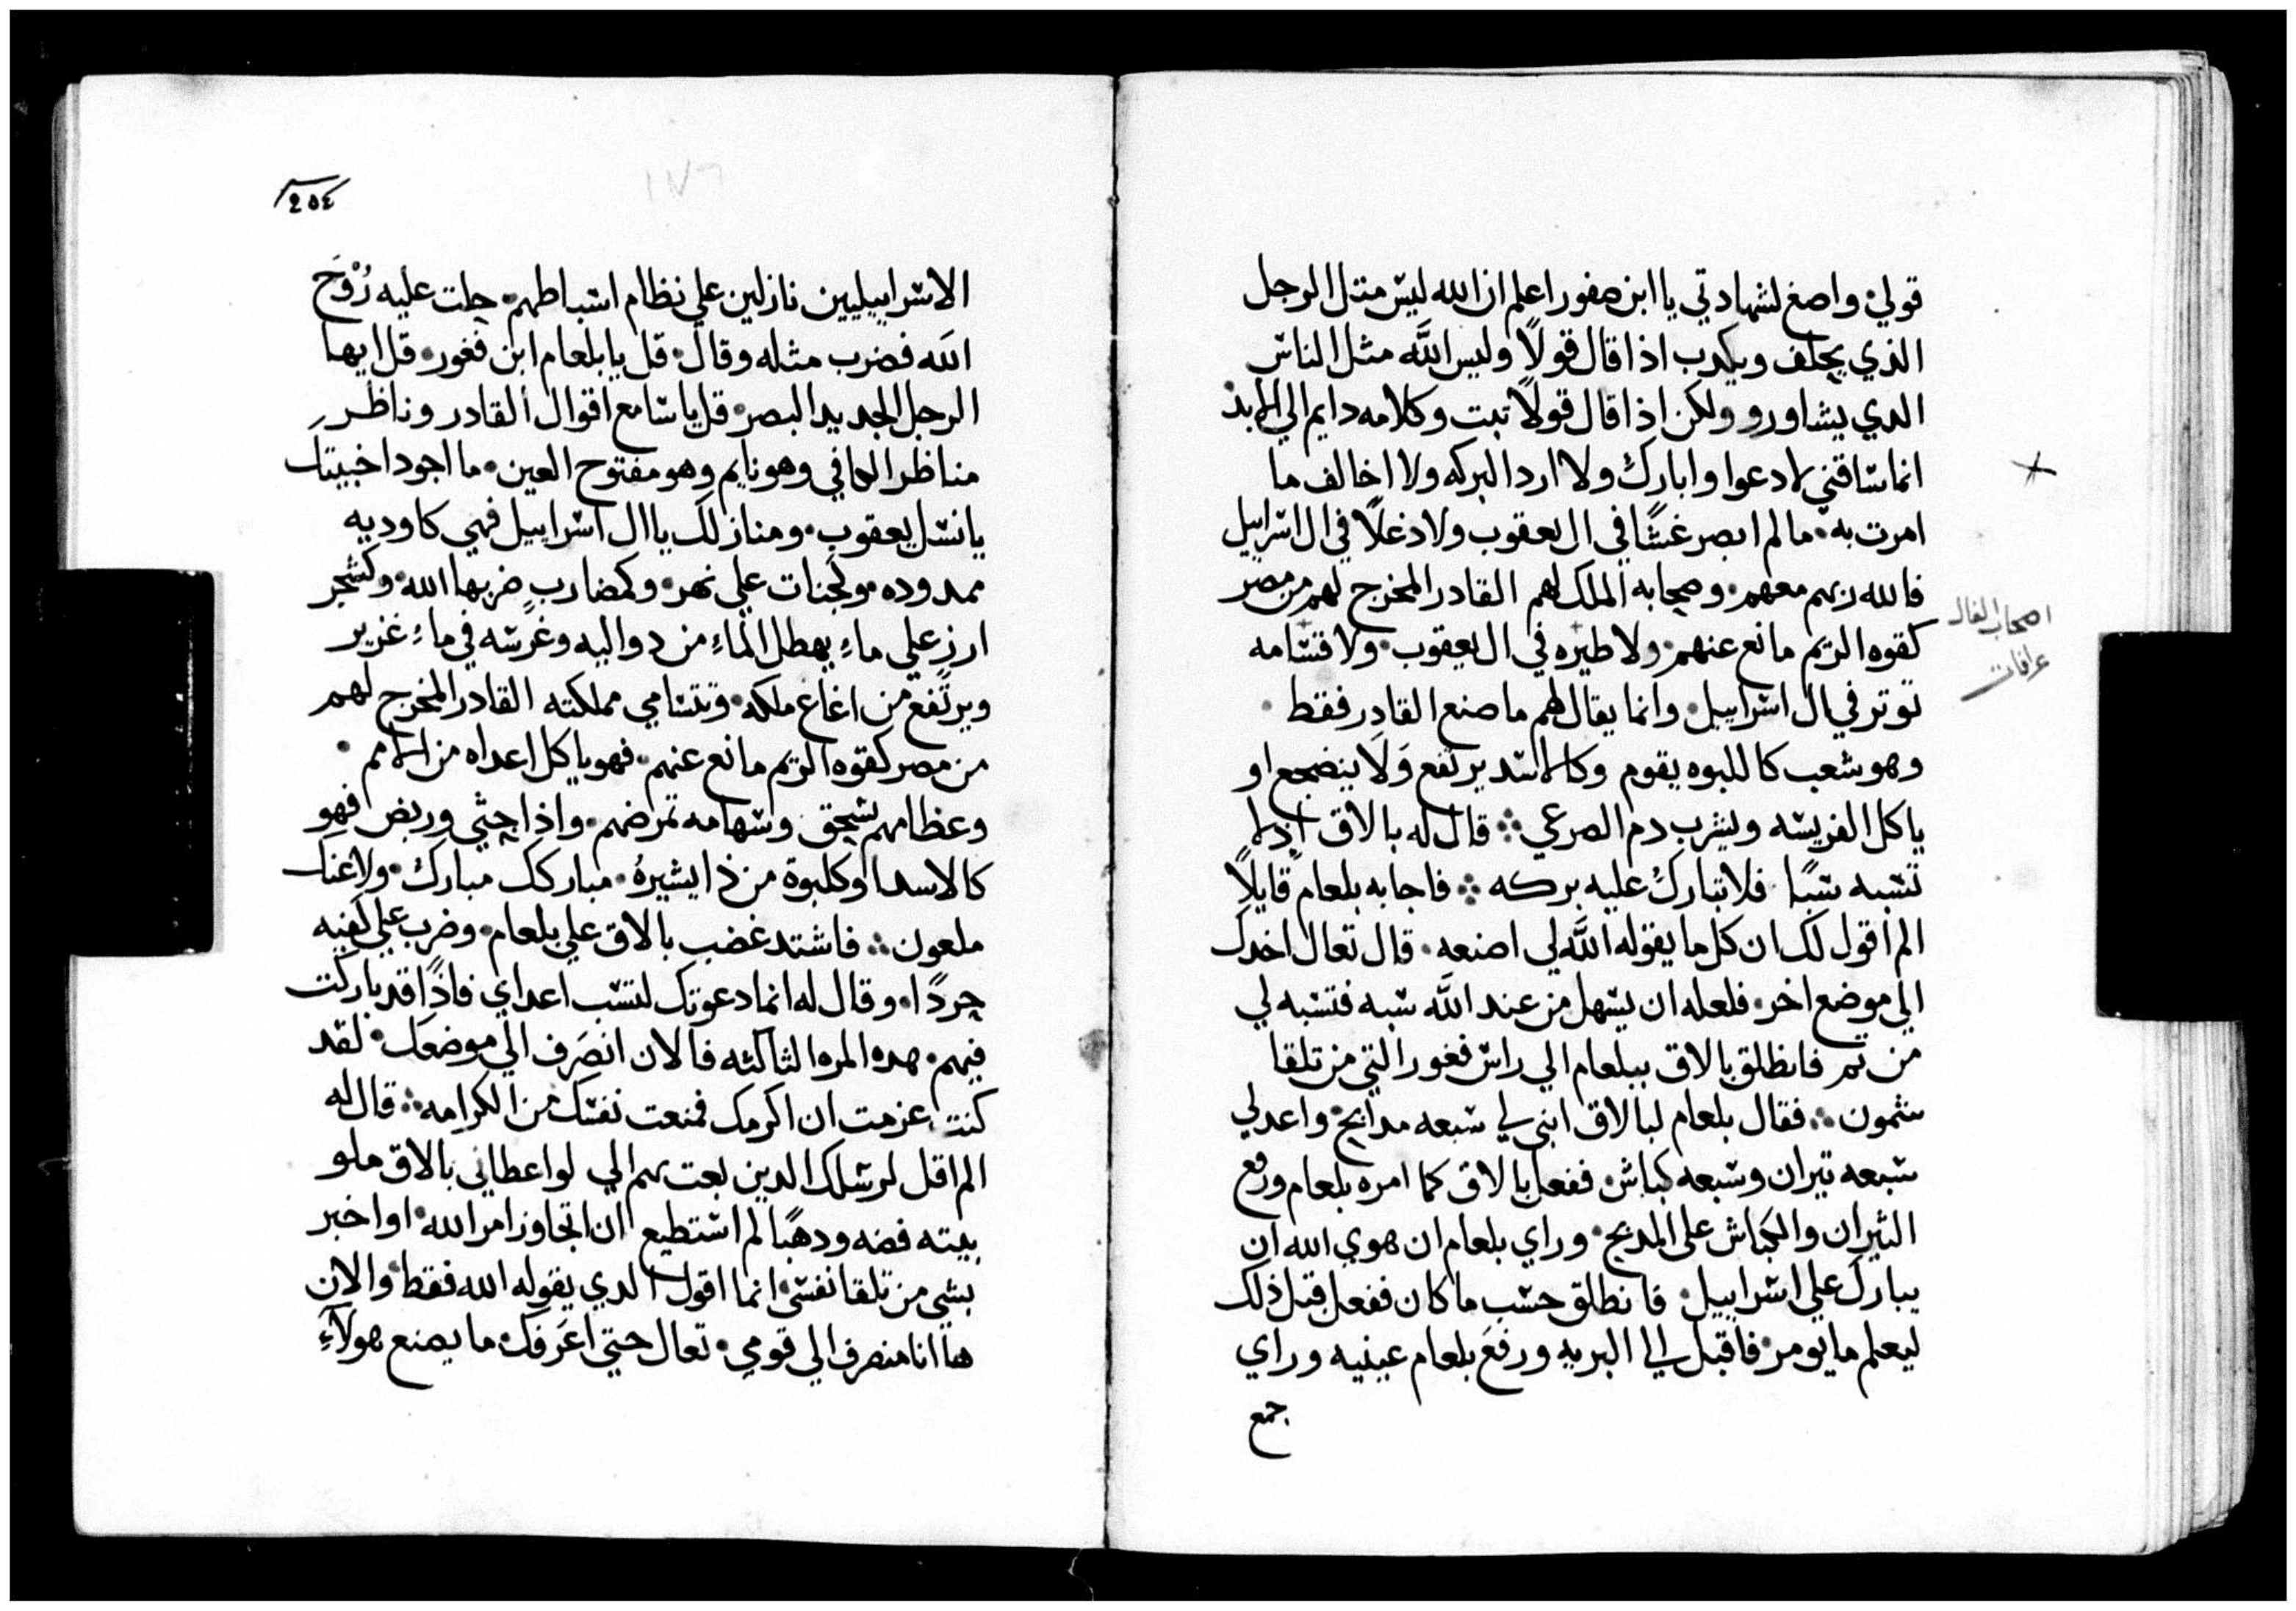 قولي واصغ لشهادتي يا ابن صفور اعلم ان الله ليس متل الرجل
الذي يحلف ويكدب اذا قال قولاً وليس الله مثل الناس
الدي يشاورو ولكن اذا قال قولاً تبت وكلامه دايم الي الابد
انما ساقني لادعوا وابارك ولا ارد البركه ولا اخالف ما
امرت به · ما لم ابصر غشًا في ال يعقوب ولا دغلاً في ال اسراييل
فالله ربهم معهم · وصحابه الملك لهم القادر المخرج لهم من مصر
كقوه الريم مانع عنهم · ولا طيره في ال يعقوب · ولا قسامه
توتر في ال اسراييل · وانما يقال لهم ما صنع القادر فقط ·
وهو شعب كاللبوه يقوم وكالاسد يرتفع وَلَا ينضجع او
ياكل الفريسه ويشرب دم الصرعي ⁘ قال له بالاق اذ لا
تسبه سبًا · فلا تبارك عليه بركه ⁘ فاجابه بلعام قايلاً
الم اقول لك ان كل ما يقوله الله لي اصنعه · قال تعال اخدك
الي موضع اخر · فلعله ان يسهل من عند الله سبه فتسبه لي
من تم فانطلق بالاق ببلعام الي راس فغور التي من تلقا
شمون ⁘ فقال بلعام لبالاق ابني لي سبعه مدابح · واعد لي
سبعه تيران وسبعه كباش · ففعل بالاق كما امره بلعام ورفع
الثيران والكباش علي المدبح · وراي بلعام ان هوي الله ان
يبارك علي اسراييل · فانطلق حسب ما كان ففعل قبل ذلك
ليعلم ما يومر · فاقبل الي البريه ورفع بلعام عينيه وراي
جمع
اصحاب الفال
عرافات
٢٥٤
١٧٦
الاسراييليين نازلين علي نظام اسباطهم · حلت عليه رُوْحَ
الله فضرب مثله وقال · قل يا بلعام ابن فغور · قل ايها
الرجل الجديد البصر · قل يا سامع اقوال القادر وناظر
مناظر الكافي وهو نايم وهو مفتوح العين · ما اجود اخبيتك
يا نسل يعقوب · ومنازلك يا ال اسراييل فهي كاوديه
ممدوده · وكجنات علي نهر · وكمضاربٍ ضربها الله · وكشجر
ارز علي ماءِ يهطل الماءِ من دواليه وغرسه في ماءِ غزير
ويرتفع من اغاغ ملكه · وتتسامي مملكته القادر المخرج لهم
من مصر كقوه الريم مانع عنهم · فهو ياكل اعداه من الامم ·
وعظامهم يسحق وسهامه تمرضهم · واذا جثي وربض فهو
كالاسد او كلبوة من ذا يشيرهُ · مباركك مبارك · ولاعنك
ملعون ⁘ فاشتد غضب بالاق علي بلعام · وضرب علي كفيه
حردًا · وقال له انما دعوتك لتسب اعداي فاذًا قد باركت
فيهم · هده المره الثالثه فالان انصَرف الي موضعك · لقد
كنت عزمت ان اكرمك فمنعت نفسك من الكرامه ⁘ قال له
الم اقل لرسلك الدين بعت بهم الي لو اعطاني بالاق ملو
بيته فضه ودهبًا لم استطيع ان اتجاوز امر الله · او اخبر
بشي من تلقا نفسي انما اقول الدي يقوله الله فقط والان
ها انا منصرف الي قومي · تعال حتي اعَرفك ما يصنع هولآءِ